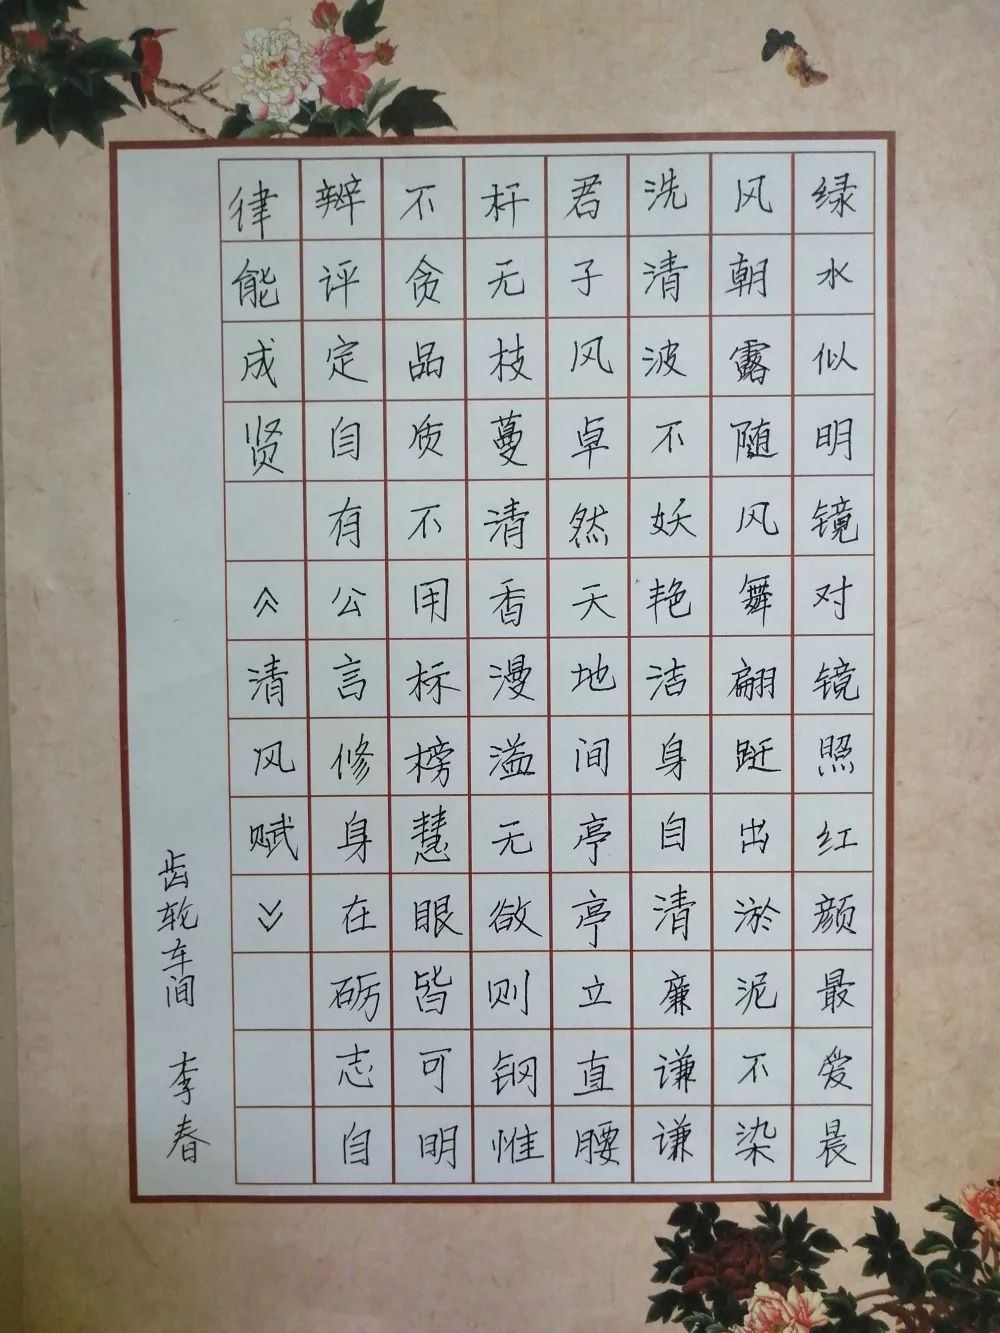 绿水似明镜对镜照红颜最爱晨
风朝露随风舞翩跹出淤泥不染
洗清波不妖艳洁身自清廉谦谦
君子风卓然天地间亭亭立直腰
杆无枝蔓清香漫溢无欲则钢惟
不贪品质不用标榜慧眼皆可明
辨评定自有公言修身在砺志自
律能成贤 《清风赋》
齿轮车间 李春